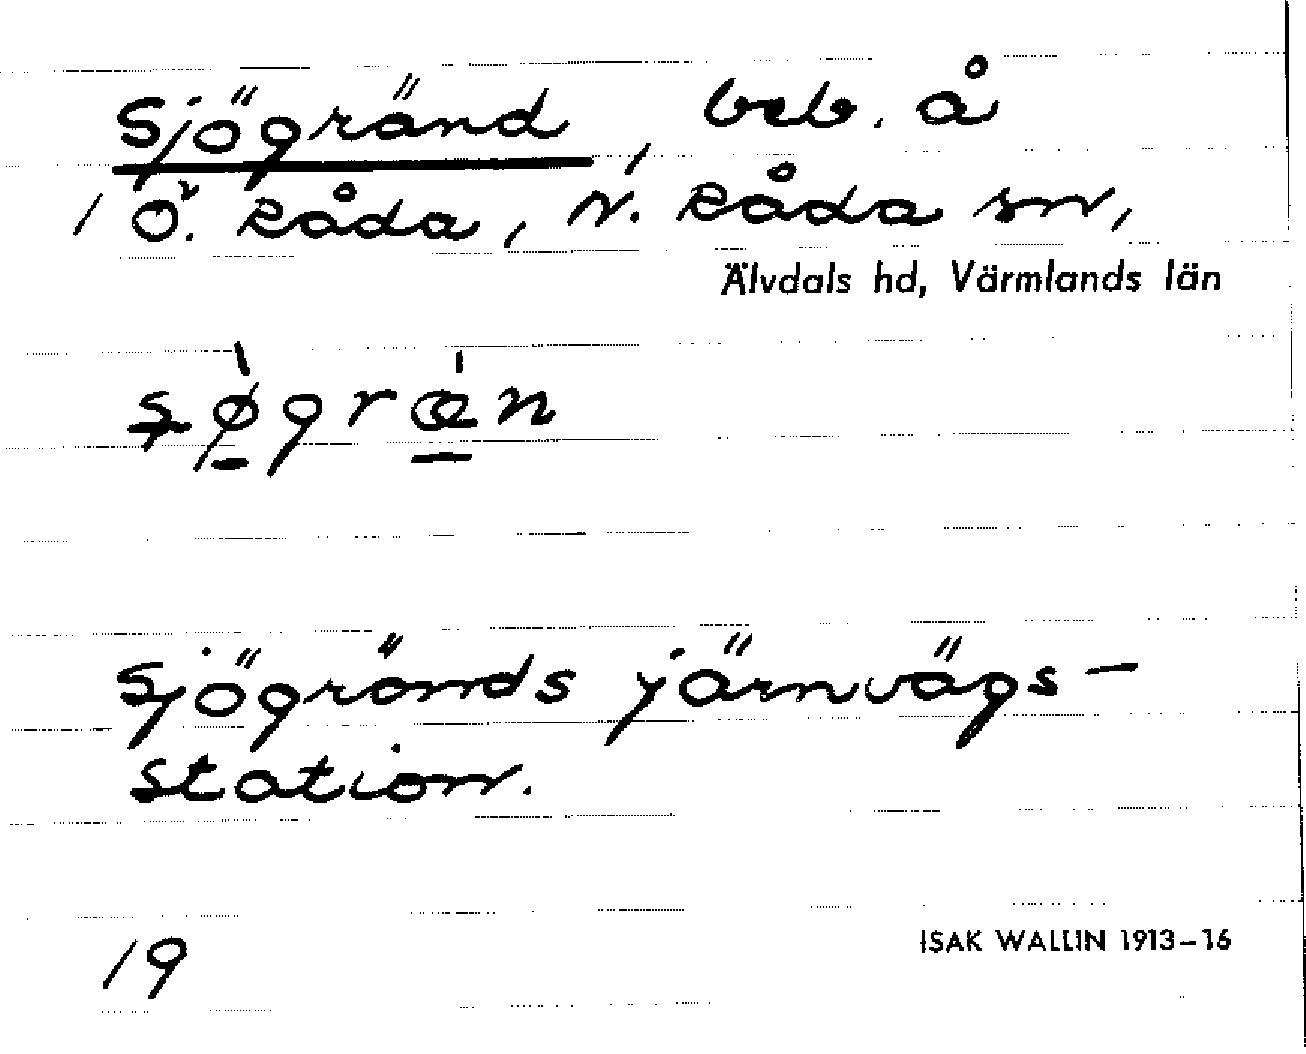 Sjögränd, beb. å
/ Ö. Råda, N. Råda sn,
Älvdals hd, Värmlands län
Sjögränds järnvägs-
station.
19
ISAK WALLIN 1913–16